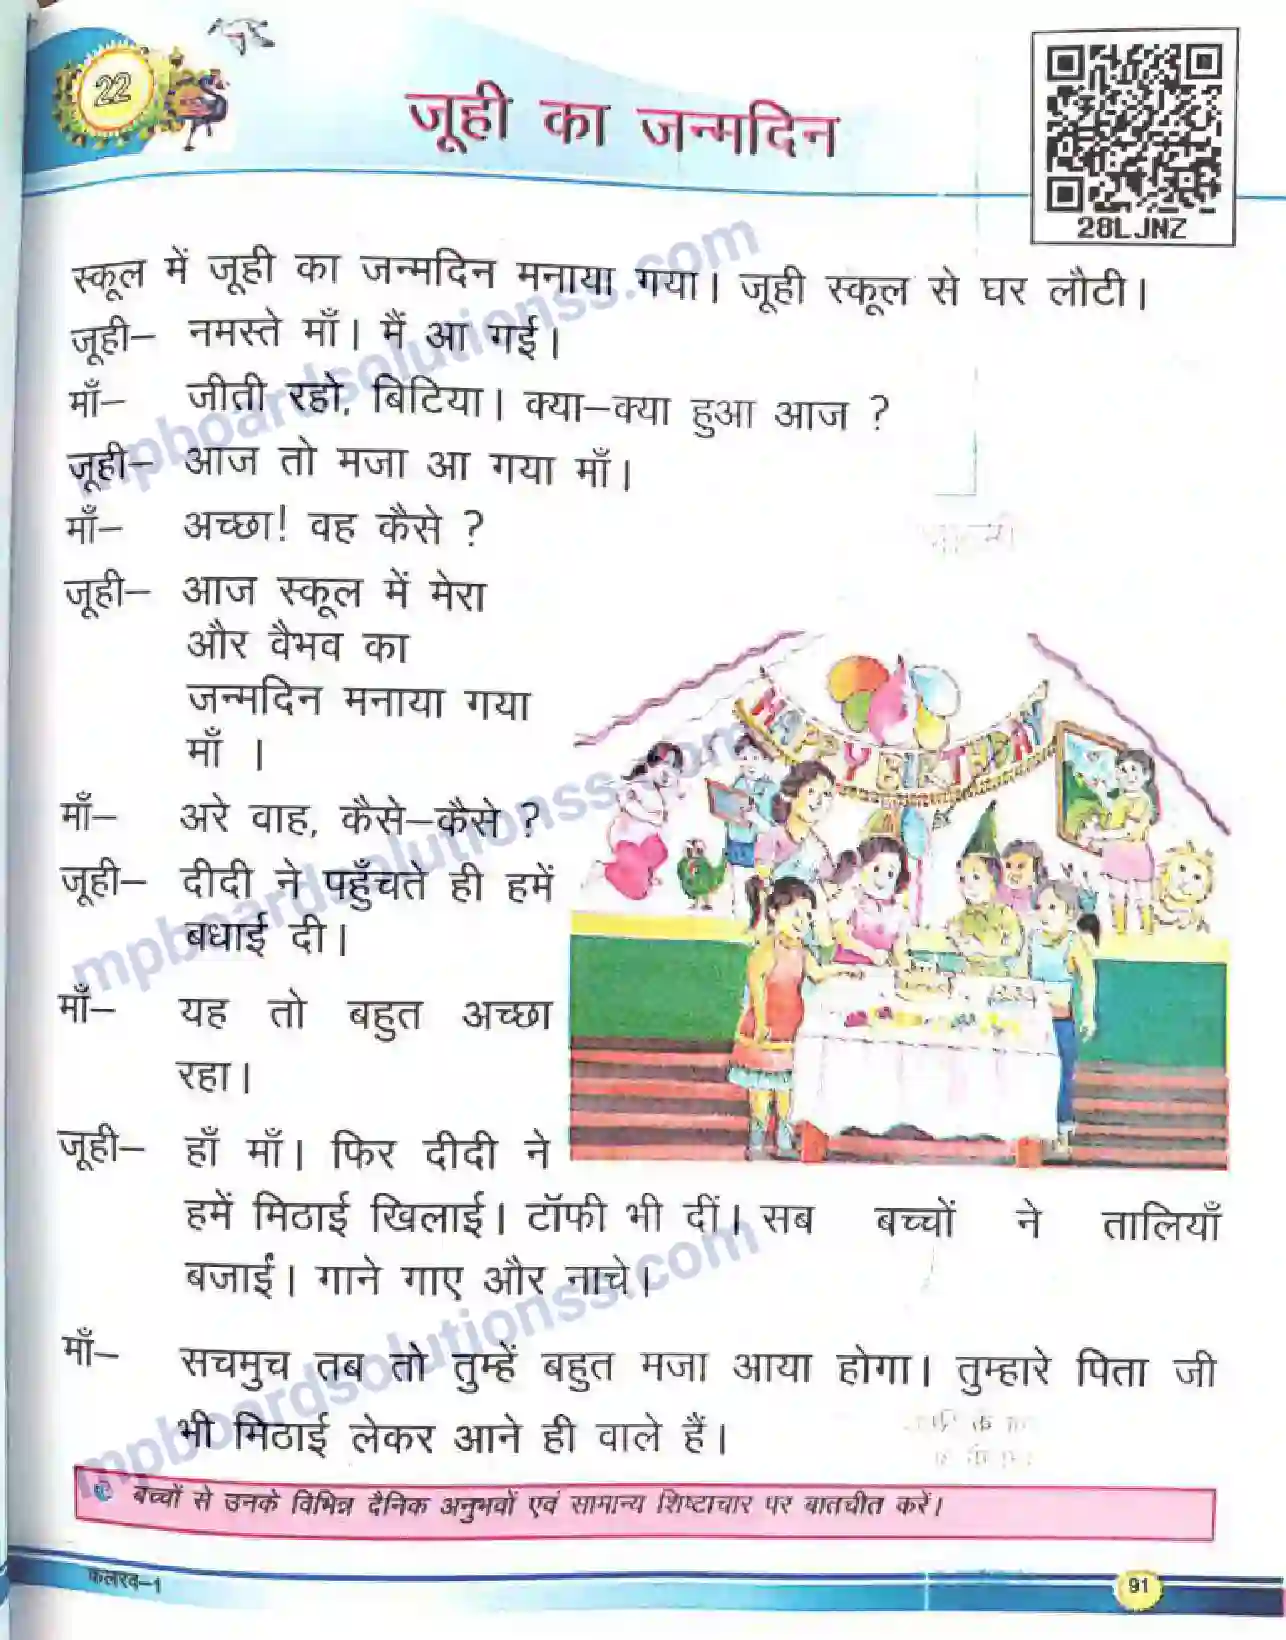 22
जूही का जन्मदिन
28LJNZ
स्कूल में जूही का जन्मदिन मनाया गया। जूही स्कूल से घर लौटी।
जूही– नमस्ते माँ। मैं आ गई।
माँ– जीती रहो, बिटिया। क्या–क्या हुआ आज ?
जूही– आज तो मजा आ गया माँ।
माँ– अच्छा! वह कैसे ?
जूही– आज स्कूल में मेरा
और वैभव का
जन्मदिन मनाया गया
माँ ।
माँ– अरे वाह, कैसे–कैसे ?
जूही– दीदी ने पहुँचते ही हमें
बधाई दी।
माँ– यह तो बहुत अच्छा
रहा।
जूही– हाँ माँ। फिर दीदी ने
हमें मिठाई खिलाई। टॉफी भी दीं। सब बच्चों ने तालियाँ
बजाईं। गाने गाए और नाचे।
माँ– सचमुच तब तो तुम्हें बहुत मजा आया होगा। तुम्हारे पिता जी
भी मिठाई लेकर आने ही वाले हैं।
HAPPY BIRTHDAY
बच्चों से उनके विभिन्न दैनिक अनुभवों एवं सामान्य शिष्टाचार पर बातचीत करें।
कलरव–1
91
mpboardsolutionss.com
mpboardsolutionss.com
mpboardsolutionss.com